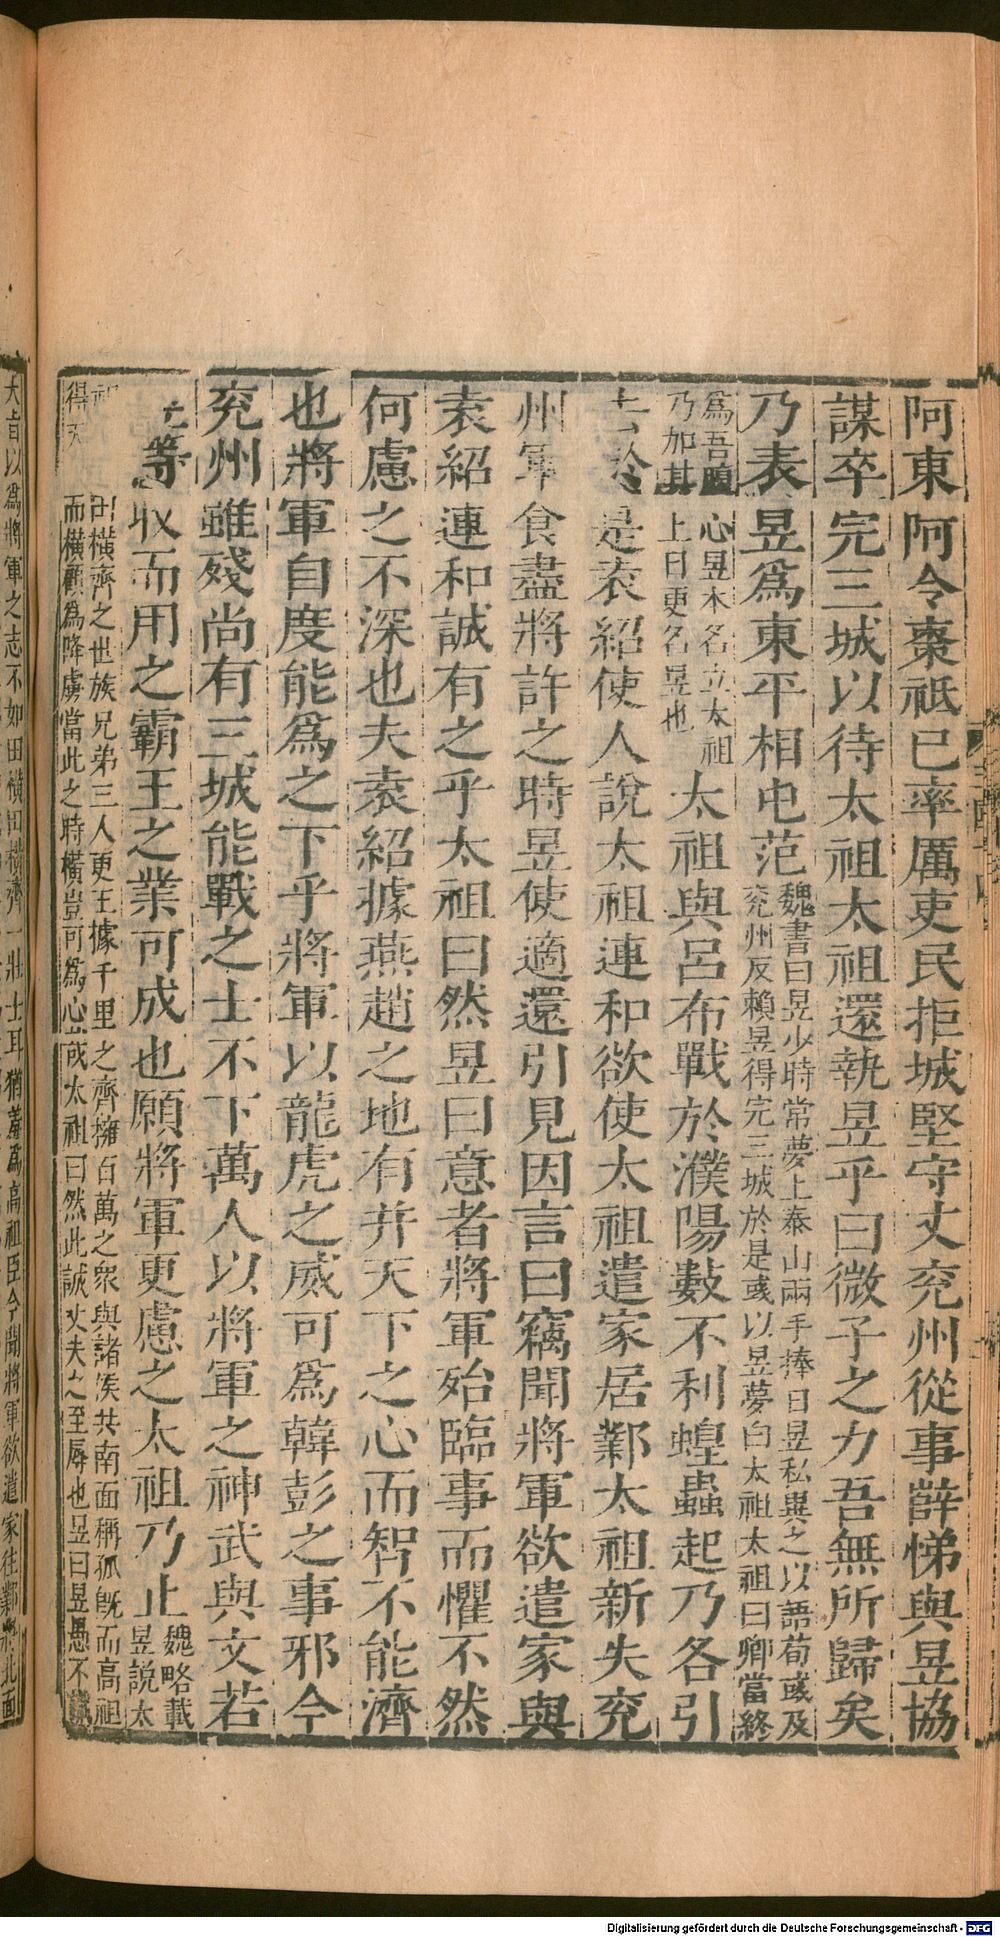 阿東阿令棗祗已率厲吏民拒城堅守丈兖州從事薛悌與昱協
謀卒完三城以待太祖太祖還執昱乎曰微子之力吾無所歸矣
乃表昱爲東平相屯范魏書曰昱少時常夢上泰山兩手捧日昱私異之以語荀彧及
兖州反賴昱得完三城於是彧以昱夢白太祖太祖曰卿當終
爲吾腹心昱本名立太祖
乃加其上日更名昱也太祖與呂布戰於濮陽數不利蝗蟲起乃各引
去於是袁紹使人說太祖連和欲使太祖遣家居鄴太祖新失兖
州軍食盡將許之時昱使適還引見因言曰竊聞將軍欲遣家與
袁紹連和誠有之乎太祖曰然昱曰意者將軍殆臨事而懼不然
何慮之不深也夫袁紹據燕趙之地有并天下之心而智不能濟
也將軍自度能爲之下乎將軍以龍虎之威可爲韓彭之事邪今
兖州雖殘尚有三城能戰之士不下萬人以將軍之神武與文若
等收而用之霸王之業可成也願將軍更慮之太祖乃止魏略載
昱說太
田橫齊之世族兄弟三人更王據千里之齊擁百萬之衆與諸侯共南面稱孤旣而高祖
得天而橫顧爲降虜當此之時橫豈可爲心哉太祖曰然此誠丈夫之至辱也昱曰昱愚不識
大旨以爲將軍之志不如田橫田橫齊一壯士耳猶羞爲高祖臣今聞將軍欲遣家往鄴將北面
Digitalisierung gefördert durch die Deutsche Forschungsgemeinschaft - DFG